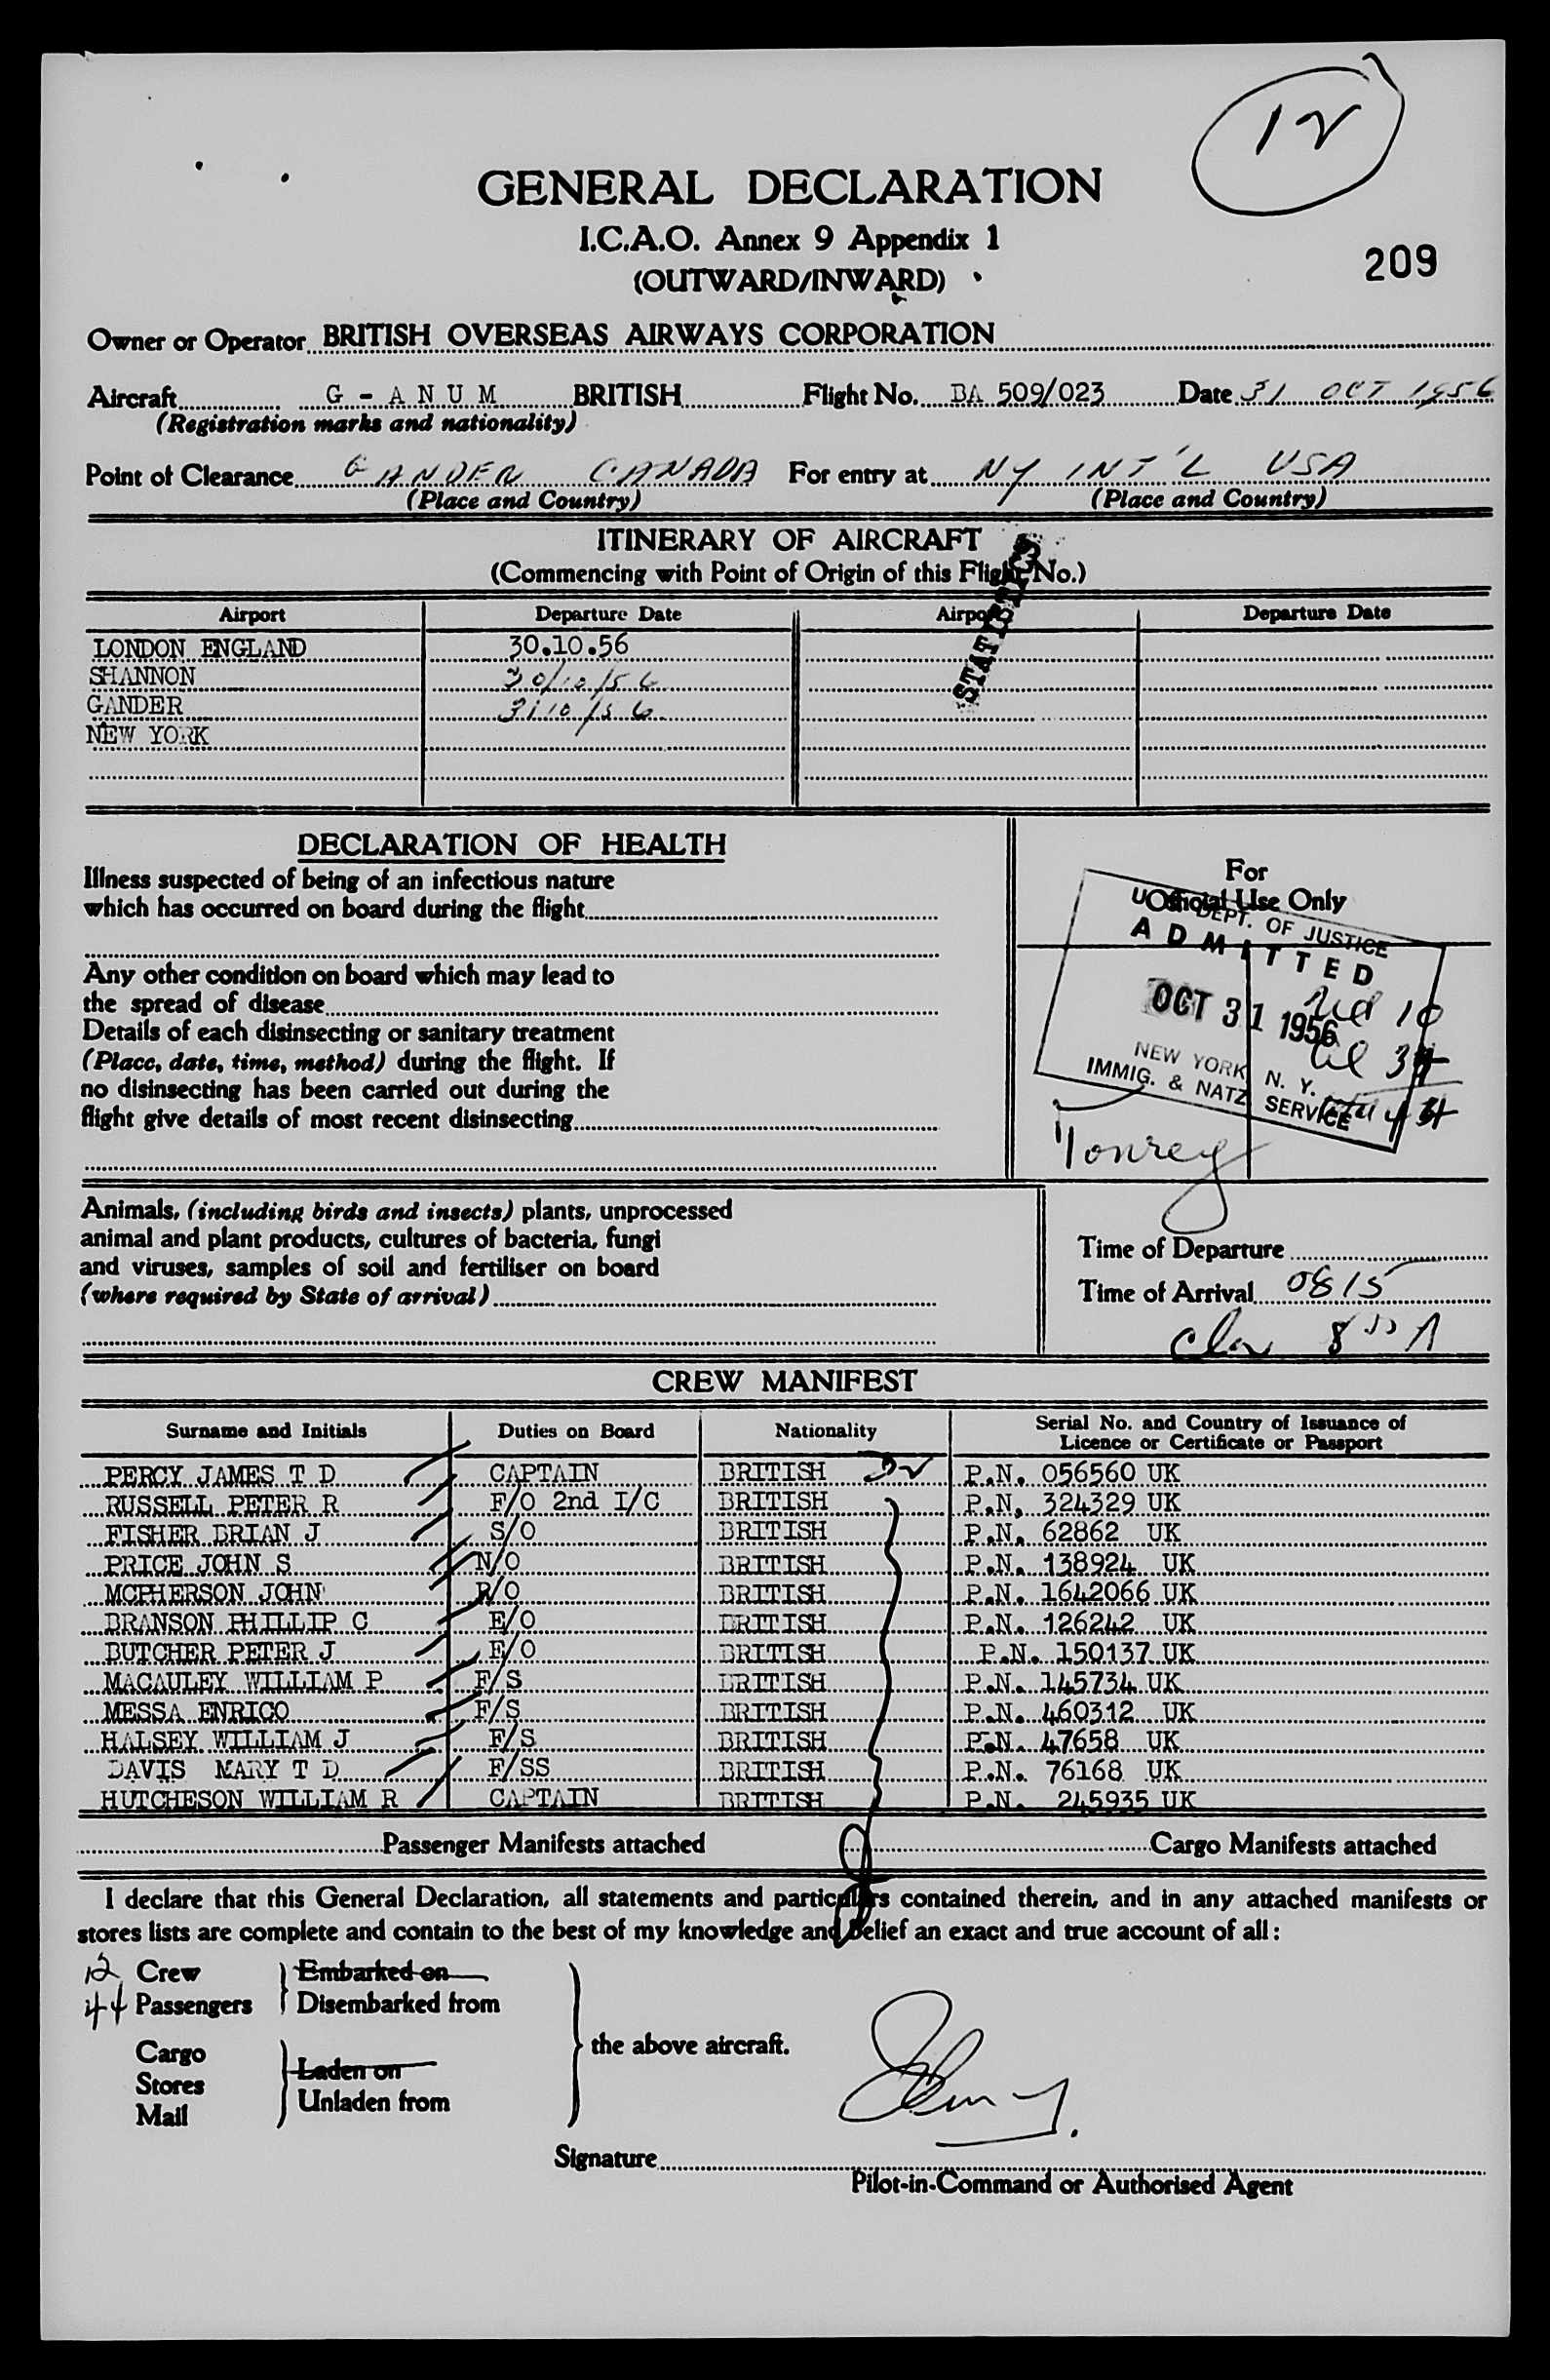 12
GENERAL DECLARATION
I.C.A.O. Annex 9 Appendix 1
(OUTWARD/INWARD)
209
Owner or Operator BRITISH OVERSEAS AIRWAYS CORPORATION
Aircraft G - A N U M BRITISH Flight No. BA 509/023 Date 31 OCT 1956
(Registration marks and nationality)
Point of Clearance GANDER CANADA For entry at NY INT'L USA
(Place and Country) (Place and Country)
ITINERARY OF AIRCRAFT
(Commencing with Point of Origin of this Flight No.)
STATISTICS
Airport Departure Date Airport Departure Date
LONDON ENGLAND 30.10.56
SHANNON 30/10/56
GANDER 31/10/56
NEW YORK
DECLARATION OF HEALTH
Illness suspected of being of an infectious nature
which has occurred on board during the flight
Any other condition on board which may lead to
the spread of disease
Details of each disinsecting or sanitary treatment
(Place, date, time, method) during the flight. If
no disinsecting has been carried out during the
flight give details of most recent disinsecting
For
Official Use Only
DEPT. OF JUSTICE
ADMITTED
OCT 31 1956
NEW YORK N. Y.
IMMIG. & NATZ SERVICE
10
34
Tonrey
Animals, (including birds and insects) plants, unprocessed
animal and plant products, cultures of bacteria, fungi
and viruses, samples of soil and fertiliser on board
(where required by State of arrival)
Time of Departure
Time of Arrival 0815
CREW MANIFEST
Surname and Initials Duties on Board Nationality Serial No. and Country of Issuance of
Licence or Certificate or Passport
PERCY JAMES T D CAPTAIN BRITISH P.N. 056560 UK
RUSSELL PETER R F/O 2nd I/C BRITISH P.N. 324329 UK
FISHER BRIAN J S/O BRITISH P.N. 62862 UK
PRICE JOHN S N/O BRITISH P.N. 138924 UK
MCPHERSON JOHN R/O BRITISH P.N. 1642066 UK
BRANSON PHILLIP C E/O BRITISH P.N. 126242 UK
BUTCHER PETER J E/O BRITISH P.N. 150137 UK
MACAULEY WILLIAM P F/S BRITISH P.N. 145734 UK
MESSA ENRICO F/S BRITISH P.N. 460312 UK
HALSEY WILLIAM J F/S BRITISH P.N. 47658 UK
DAVIS MARY T D F/SS BRITISH P.N. 76168 UK
HUTCHESON WILLIAM R CAPTAIN BRITISH P.N. 245935 UK
Passenger Manifests attached Cargo Manifests attached
I declare that this General Declaration, all statements and particulars contained therein, and in any attached manifests or
stores lists are complete and contain to the best of my knowledge and belief an exact and true account of all:
12 Crew Embarked on
44 Passengers Disembarked from
the above aircraft.
Cargo
Stores Laden on
Mail Unladen from
Signature
Pilot-in-Command or Authorised Agent